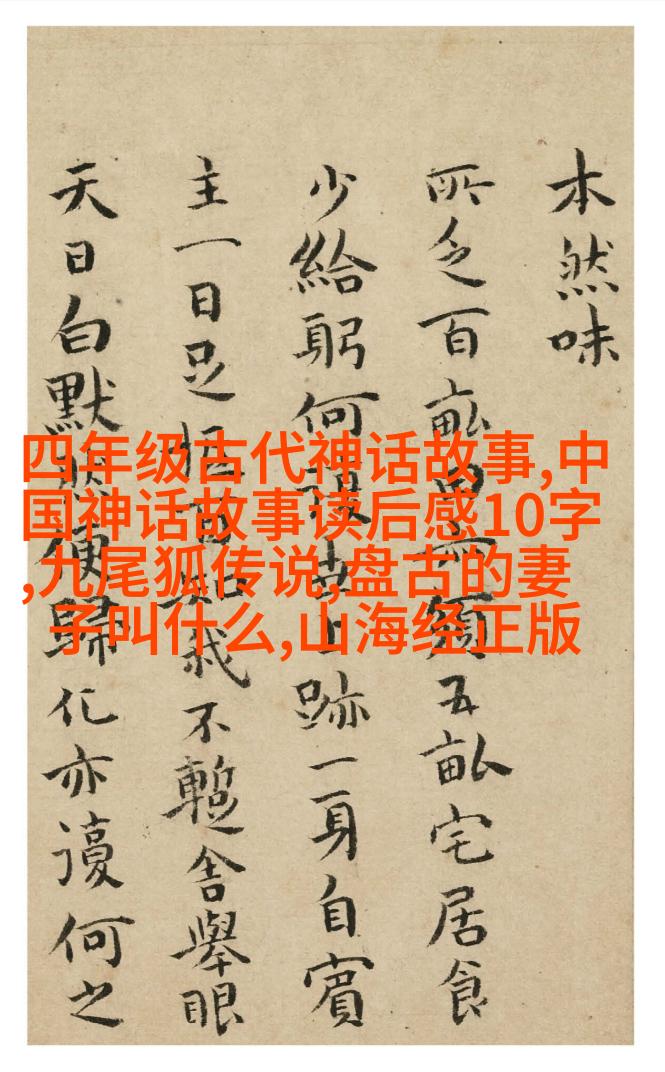 本然味
所乏百畝五畝宅居食
少給躬何上跡一身自賓
主一日足我不蹔舍舉眼
天日白默然便歸化亦何之
四年级古代神话故事,中
国神话故事读后感10字
,九尾狐传说,盘古的妻
子叫什么,山海经正版